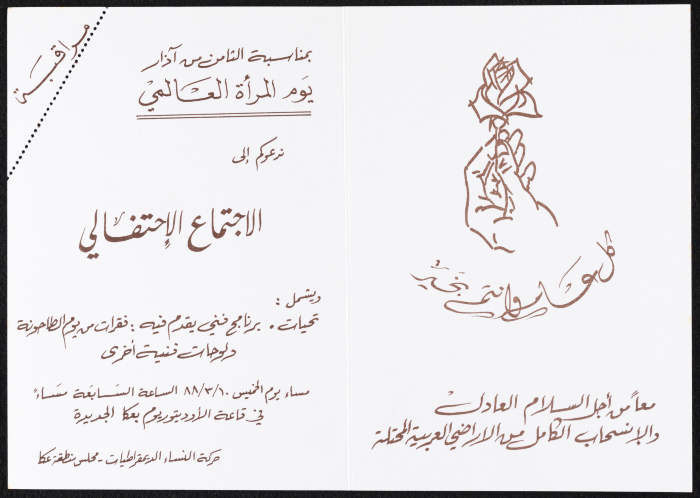 كل عام وانتم بخير
معاً من أجل السلام العادل
والإنسحاب الكامل من الاراضي العربية المحتلة
مراقبة
بمناسبة الثامن من آذار
يوم المرأة العالمي
ندعوكم إلى
الاجتماع الإحتفالي
ويشمل :
تحيات • برنامج فني يقدم فيه : فقرات من يوم الطاحونة
ولوحات فنية أخرى
مساء يوم الخميس ٨٨/٣/١٠ الساعة السابعة مساءً
في قاعة الأوديتوريوم بعكا الجديدة
حركة النساء الديمقراطيات - مجلس منطقة عكا